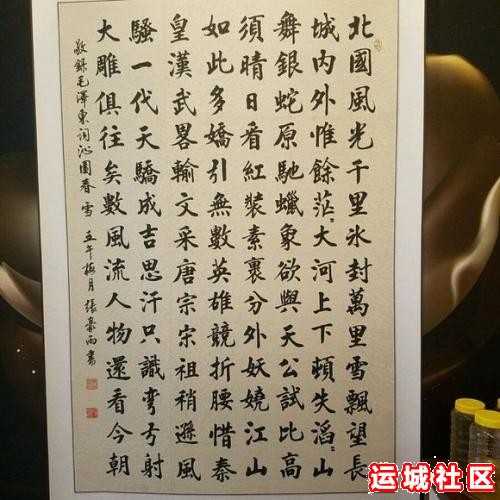 北國風光千里氷封萬里雪飄望長
城内外惟餘茫〻大河上下頓失滔〻山
舞銀蛇原馳蠟象欲與天公試比高
須晴日看紅裝素裹分外妖嬈江山
如此多嬌引無數英雄競折腰惜秦
皇漢武畧輸文采唐宗宋祖稍遜風
騷一代天驕成吉思汗只識彎弓射
大雕俱往矣數風流人物還看今朝
敬錄毛澤東詞沁園春 雪 午梅月張豪雨書
运城社区